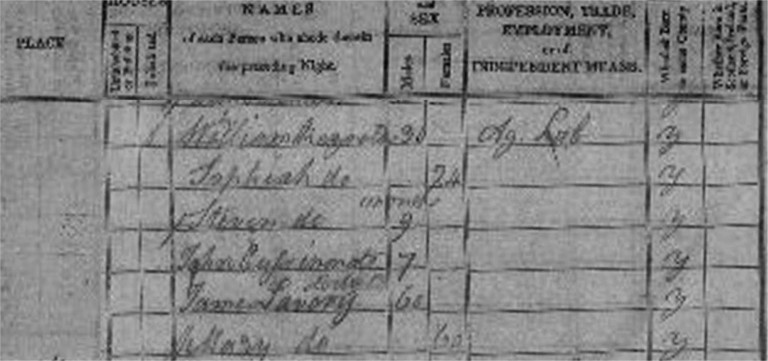 HOUSES
PLACE
NAMES
of each Person who abode therein
the preceding Night.
AGE and
SEX
Males
Females
PROFESSION, TRADE,
EMPLOYMENT,
or of
INDEPENDENT MEANS.
Uninhabited or Building
Inhabited
Whether Born in same County
Whether Born in Scotland, Ireland, or Foreign Parts
William 30 Ag. Lab y
Sophiah do 24 y
months
Steven do 9 y
John 7 y
James Savory 60 y
Mary do 60 y